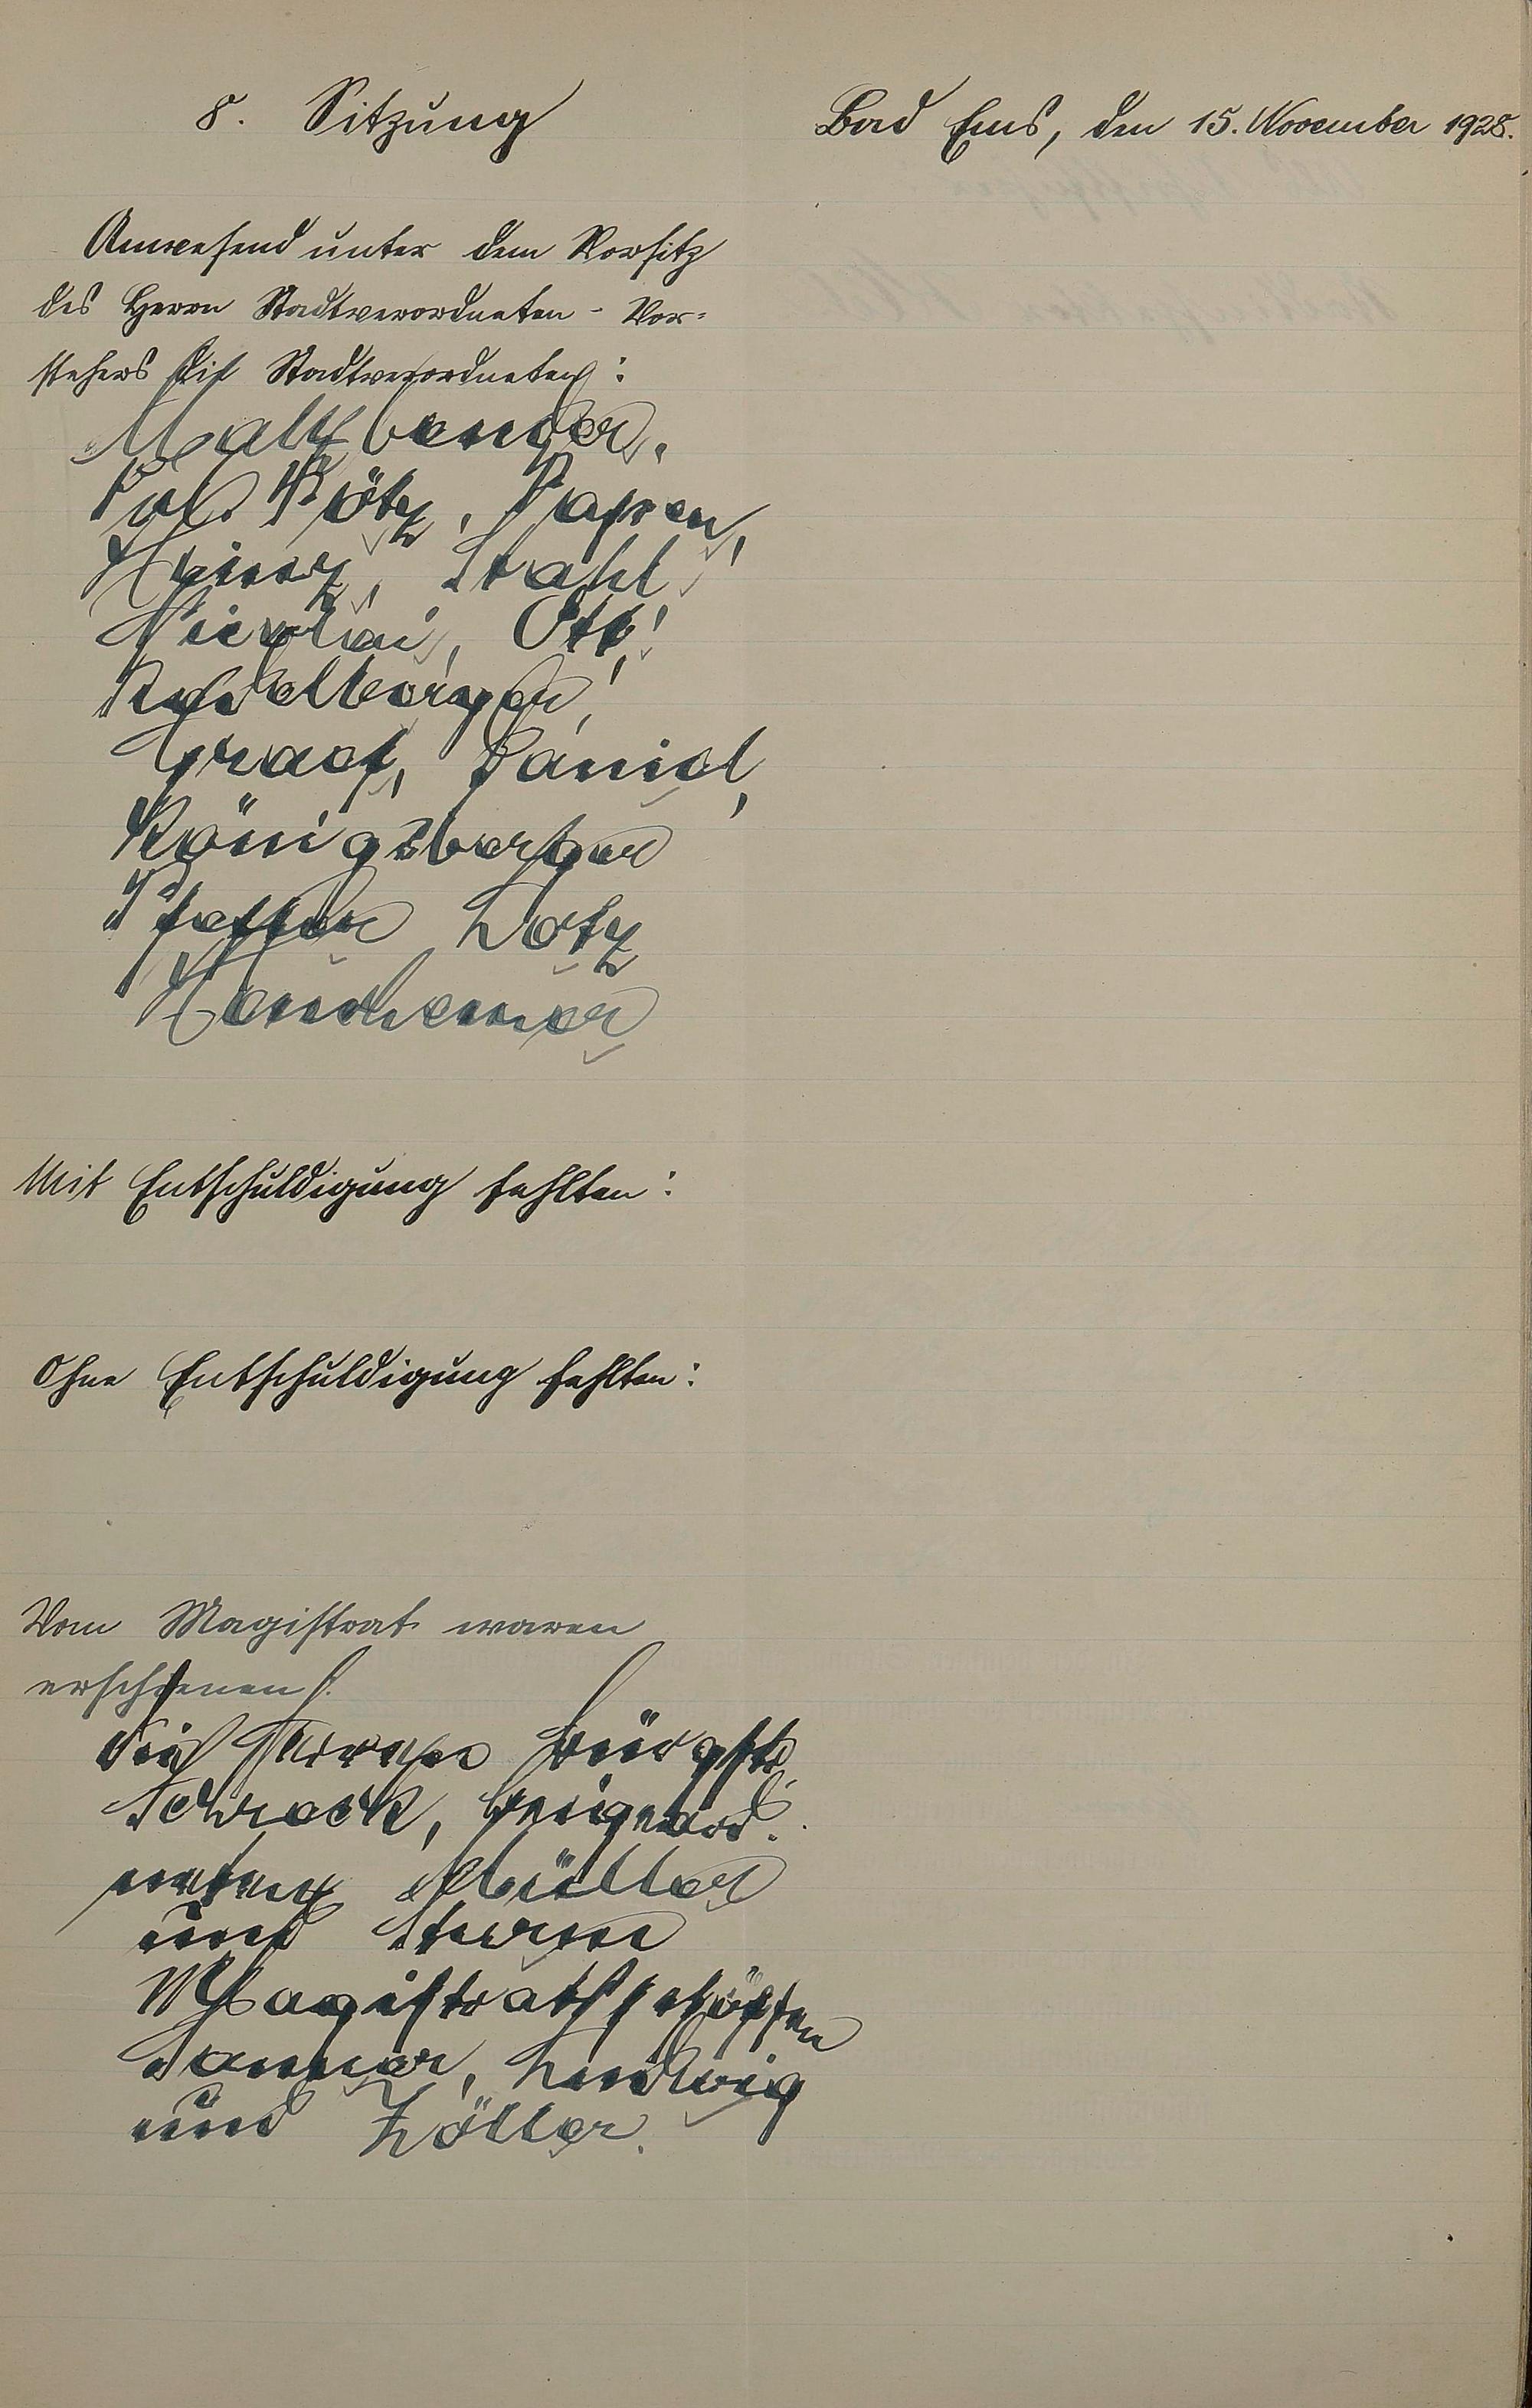 8. Sitzung
Bad Ems, den 15. November 1928.
Anwesend unter dem Vorsitz
des Herrn Stadtverordneten-Vor=
stehers die Stadtverordneten:
Rötz, Papen,
Heinz, Strahl
Nicolai, Ott,
Graef, Daniel,
Königsberger
Pfeffer Lotz
Mit Entschuldigung fehlten:
Ohne Entschuldigung fehlten:
Vom Magistrat waren
erschienen
die Herren Bürgstr.
Schreck, Beigeord.
neten Müller
und Sturm
Magistratsschöffen
Sanner, Ludwig
und Zöller.